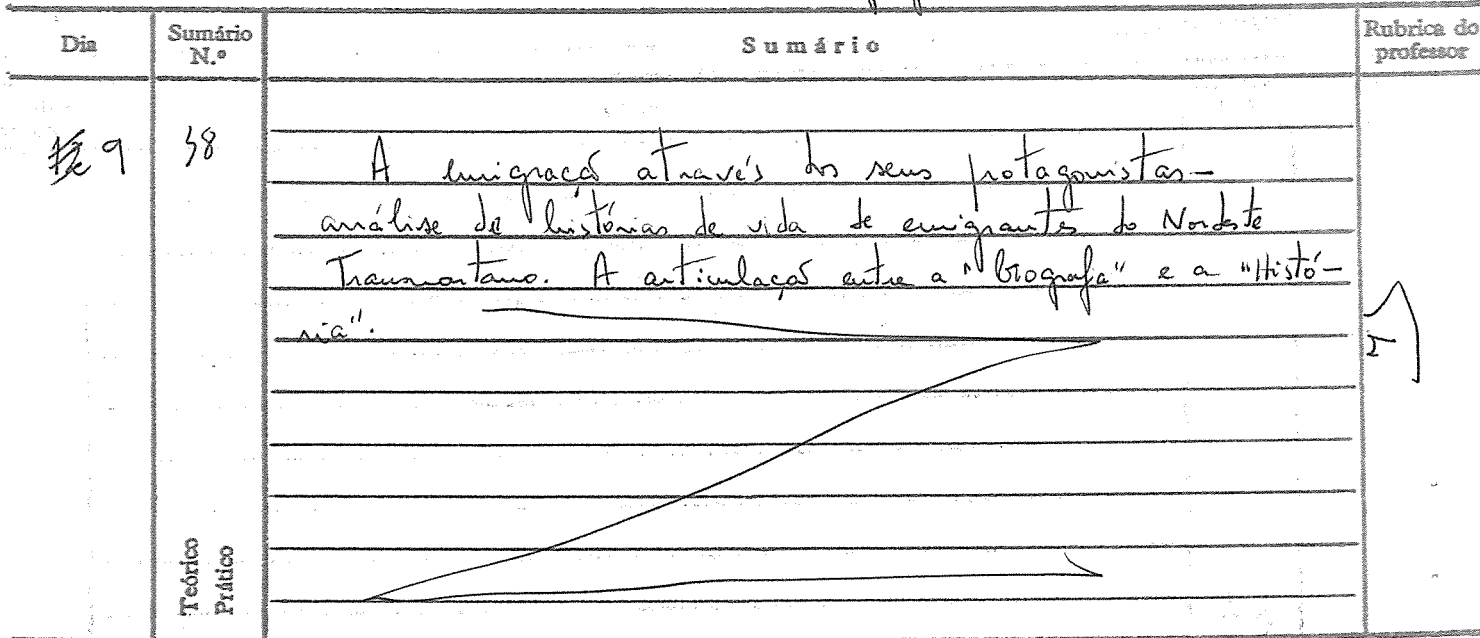 Dia Sumário N.º Sumário Rubrica do professor
9 38
A emigração através dos seus protagonistas –
análise de histórias de vida de emigrantes do Nordeste
Transmontano. A articulação entre a "biografia" e a "Histó-
ria".
Teórico
Prático